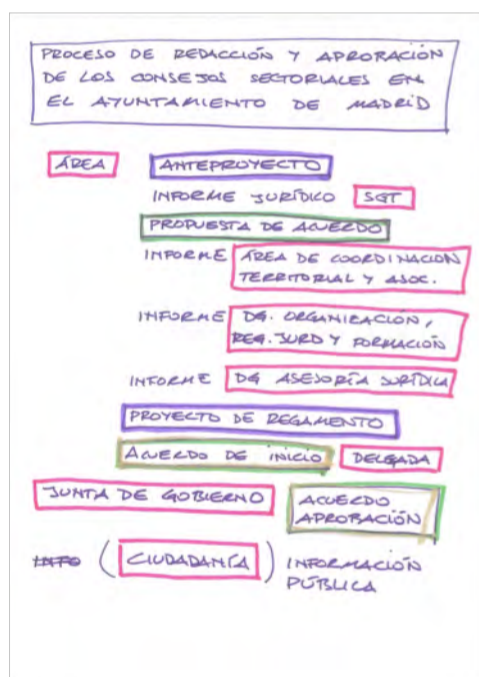 PROCESO DE REDACCIÓN Y APROBACIÓN
DE LOS CONSEJOS SECTORIALES EN
EL AYUNTAMIENTO DE MADRID
ÁREA ANTEPROYECTO
INFORME JURÍDICO SGT
PROPUESTA DE ACUERDO
INFORME ÁREA DE COORDINACIÓN
TERRITORIAL Y ASOC.
INFORME DG. ORGANIZACIÓN,
REG. JURD Y FORMACIÓN
INFORME DG ASESORÍA JURÍDICA
PROYECTO DE REGAMENTO
ACUERDO DE INICIO DELGADA
JUNTA DE GOBIERNO ACUERDO
APROBACIÓN
INFO (CIUDADANÍA) INFORMACIÓN
PÚBLICA